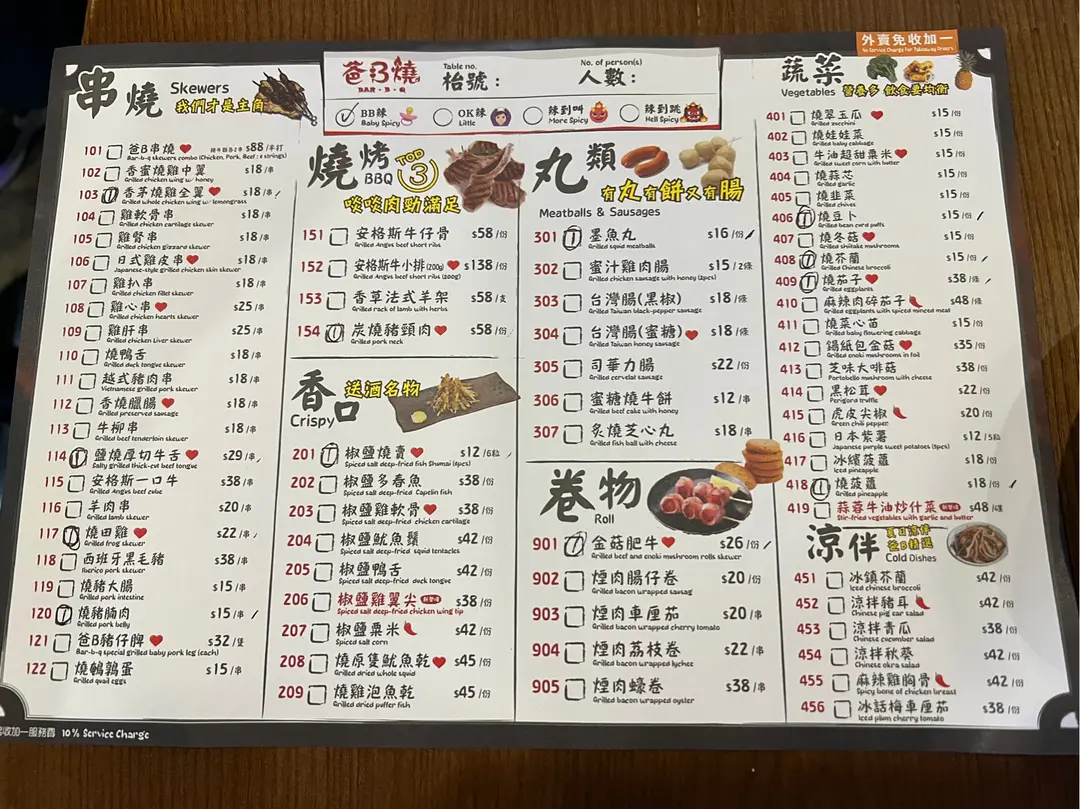 外賣免收加一
No Service Charge For Takeaway Orders
爸B燒
BAR-B-Q
Table no.
枱號：
No. of person(s)
人數：
BB辣
Baby Spicy
OK辣
Little
辣到叫
More Spicy
辣到跳
Hell Spicy
串燒
Skewers
我們才是主角
101 爸B串燒 $88/半打
Bar-b-q skewers combo (Chicken, Pork, Beef : 2 strings)
102 香蜜燒雞中翼 $18/串
Grilled chicken wing w/ honey
103 香茅燒雞全翼 $18/串
Grilled whole chicken wing w/ lemongrass
104 雞軟骨串 $18/串
Grilled chicken cartilage skewer
105 雞腎串 $18/串
Grilled chicken gizzard skewer
106 日式雞皮串 $18/串
Japanese-style grilled chicken skin skewer
107 雞扒串 $18/串
Grilled chicken fillet skewer
108 雞心串 $25/串
Grilled chicken hearts skewer
109 雞肝串 $25/串
Grilled chicken Liver skewer
110 燒鴨舌 $18/串
Grilled duck tongue skewer
111 越式豬肉串 $18/串
Vietnamese grilled pork skewer
112 香燒臘腸 $18/串
Grilled preserved sausage
113 牛柳串 $18/串
Grilled beef tenderloin skewer
114 鹽燒厚切牛舌 $29/串
Salty grilled thick-cut beef tongue
115 安格斯一口牛 $38/串
Grilled Angus beef cube
116 羊肉串 $20/串
Grilled lamb skewer
117 燒田雞 $22/串
Grilled frog skewer
118 西班牙黑毛豬 $38/串
Iberico pork skewer
119 燒豬大腸 $15/串
Grilled pork intestine
120 燒豬腩肉 $15/串
Grilled pork belly
121 爸B豬仔脾 $32/隻
Bar-b-q special grilled baby pork leg (each)
122 燒鵪鶉蛋 $15/串
Grilled quail eggs
收加一服務費 10% Service Charge
燒烤
BBQ
TOP 3
啖啖肉勁滿足
151 安格斯牛仔骨 $58/份
Grilled Angus beef short ribs
152 安格斯牛小排(200g) $138/份
Grilled Angus beef short ribs (200g)
153 香草法式羊架 $58/支
Grilled rack of lamb with herbs
154 炭燒豬頸肉 $58/份
Grilled pork neck
香口
Crispy
送酒名物
201 椒鹽燒賣 $12/6粒
Spiced salt deep-fried fish Shumai (6pcs)
202 椒鹽多春魚 $38/份
Spiced salt deep-fried Capelin fish
203 椒鹽雞軟骨 $38/份
Spiced salt deep-fried chicken cartilage
204 椒鹽魷魚鬚 $42/份
Spiced salt deep-fried squid tentacles
205 椒鹽鴨舌 $42/份
Spiced salt deep-fried duck tongue
206 椒鹽雞翼尖 $38/份
Spiced salt deep-fried chicken wing tip
207 椒鹽粟米 $42/份
Spiced salt corn
208 燒原隻魷魚乾 $45/份
Grilled dried whole squid
209 燒雞泡魚乾 $45/份
Grilled dried puffer fish
丸類
有丸有餅又有腸
Meatballs & Sausages
301 墨魚丸 $16/份
Grilled squid meatballs
302 蜜汁雞肉腸 $15/2條
Grilled chicken sausage with honey (2pcs)
303 台灣腸(黑椒) $18/條
Grilled Taiwan black-pepper sausage
304 台灣腸(蜜糖) $18/條
Grilled Taiwan honey sausage
305 司華力腸 $22/份
Grilled cervelat sausage
306 蜜糖燒牛餅 $12/串
Grilled beef cake with honey
307 炙燒芝心丸 $18/串
Grilled fish ball with cheese
卷物
Roll
901 金菇肥牛 $26/份
Grilled beef and enoki mushroom rolls skewer
902 煙肉腸仔卷 $20/份
Grilled bacon wrapped sausag
903 煙肉車厘茄 $20/串
Grilled bacon wrapped cherry tomato
904 煙肉荔枝卷 $22/串
Grilled bacon wrapped lychee
905 煙肉蠔卷 $38/串
Grilled bacon wrapped oyster
蔬菜
Vegetables
營養多 飲食要均衡
401 燒翠玉瓜 $15/份
Grilled zucchini
402 燒娃娃菜 $15/份
Grilled baby cabbage
403 牛油超甜粟米 $15/份
Grilled sweet corn with butter
404 燒蒜芯 $15/份
Grilled garlic
405 燒韮菜 $15/份
Grilled chives
406 燒豆卜 $15/份
Grilled bean curd puffs
407 燒冬菇 $15/份
Grilled shiitake mushrooms
408 燒芥蘭 $15/份
Grilled Chinese broccoli
409 燒茄子 $38/條
Grilled eggplants
410 麻辣肉碎茄子 $48/條
Grilled eggplants with spiced minced meat
411 燒菜心苗 $15/份
Grilled baby flowering cabbage
412 錫紙包金菇 $35/份
Grilled enoki mushrooms in foil
413 芝味大啡菇 $38/份
Portobello mushroom with cheese
414 黑松茸 $22/份
Perigord truffle
415 虎皮尖椒 $20/份
Green chili pepper
416 日本紫薯 $12/5粒
Japanese purple sweet potatoes (5pcs)
417 冰繽菠蘿 $18/份
Iced pineapple
418 燒菠蘿 $18/份
Grilled pineapple
419 蒜蓉牛油炒什菜 $48/碟
Stir-fried vegetables with garlic and butter
涼伴
夏日涼伴
爸B精選
Cold Dishes
451 冰鎮芥蘭 $42/份
Iced chinese broccoli
452 涼拌豬耳 $42/份
Chinese pig ear salad
453 涼拌青瓜 $38/份
Chinese cucumber salad
454 涼拌秋葵 $42/份
Chinese okra salad
455 麻辣雞胸骨 $42/份
Spicy bone of chicken breast
456 冰話梅車厘茄 $38/份
Iced plum cherry tomato